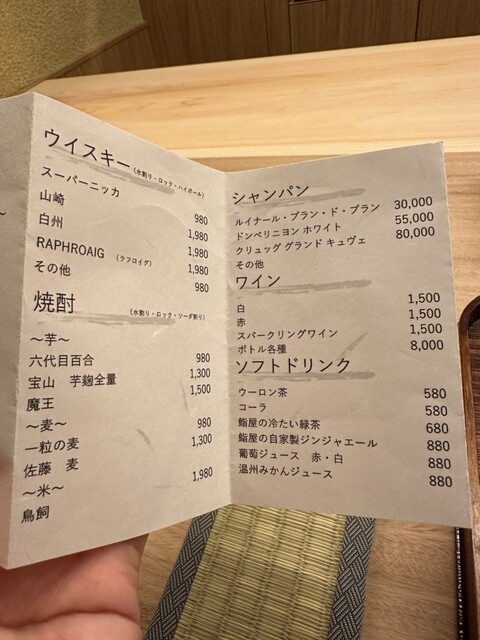 ウイスキー (水割り・ロック・ハイボール)
スーパーニッカ 980
山崎 1,980
白州 1,980
RAPHROAIG (ラフロイグ) 1,980
その他 980
焼酎 (水割り・ロック・ソーダ割り)
〜芋〜
六代目百合 980
宝山 芋麹全量 1,300
魔王 1,500
〜麦〜
一粒の麦 980
佐藤 麦 1,300
〜米〜
鳥飼 1,980
シャンパン
ルイナール・ブラン・ド・ブラン 30,000
ドンペリニヨン ホワイト 55,000
クリュッグ グランド キュヴェ 80,000
その他
ワイン
白 1,500
赤 1,500
スパークリングワイン 1,500
ボトル各種 8,000
ソフトドリンク
ウーロン茶 580
コーラ 580
鮨屋の冷たい緑茶 680
鮨屋の自家製ジンジャエール 880
葡萄ジュース 赤・白 880
温州みかんジュース 880